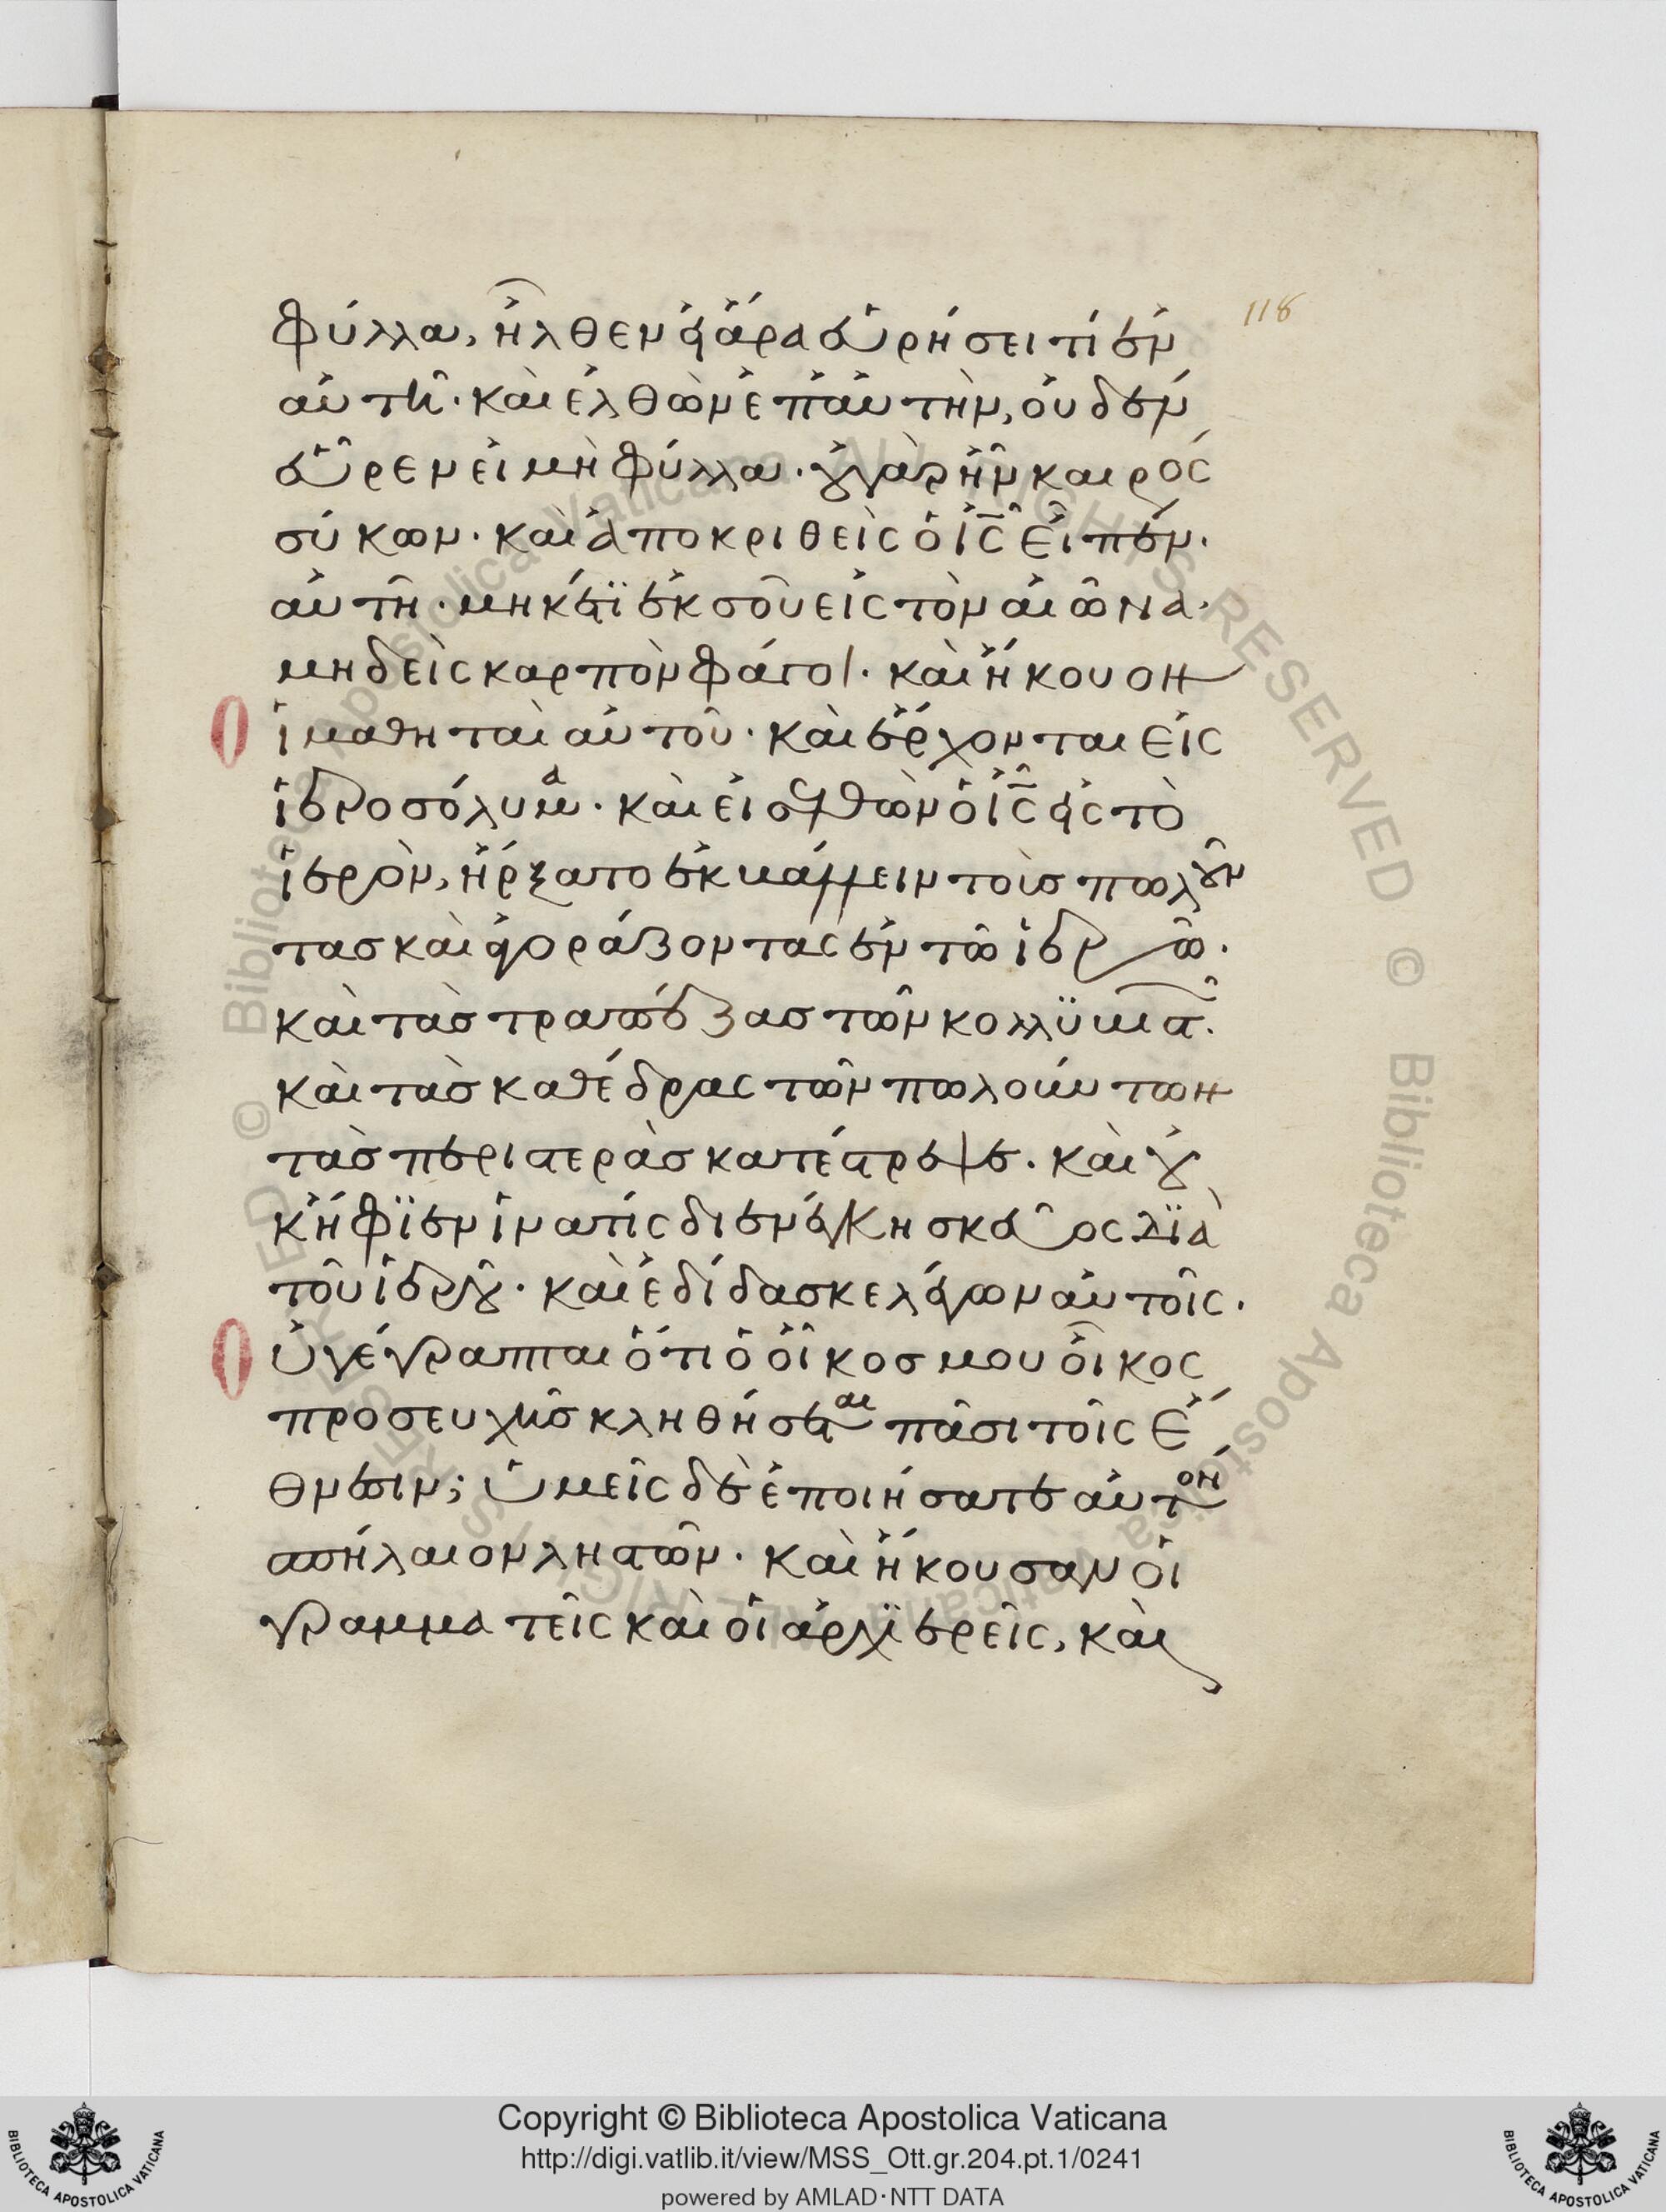 φύλλα, ἦλθεν εἰ ἄρα εὑρήσει τί ἐν
118
αὐτῆ· καὶ ἐλθὼν ἐπ' αὐτὴν, οὐδὲν
εὗρεν εἰ μὴ φύλλα· οὐ γὰρ ἦν καιρὸς
σύκων· καὶ ἀποκριθεὶς ὁ ἰς εἶπεν·
αὐτῆ· μηκέτϊ ἐκ σοῦ εἰς τὸν αἰῶνα·
μηδεὶς καρπὸν φάγοι· καὶ ἤκουον
Ο
ἱ μαθηταὶ αὐτοῦ· καὶ ἔρχονται εἰς
ἱεροσόλυμα· καὶ εἰσελθὼν ὁ ἰς εἰς τὸ
ἱερὸν, ἤρξατο ἐκβάλλειν τοὺς πωλοῦν
τας καὶ ἀγοράζοντας ἐν τῶ ἱερῶ·
καὶ τὰς τραπέζας τῶν κολλϋβιστῶν·
καὶ τὰς καθέδρας τῶν πωλούντων
τὰς περιστερὰς κατέστρεψε· καὶ οὐ
κ ἤφϊεν ἵνα τὶς διενέγκη σκεῦος δϊὰ
τοῦ ἱεροῦ· καὶ ἐδίδασκε λέγων αὐτοῖς·
Ο
ὐ γέγραπται ὅτι ὁ οἶκος μου οἶκος
προσευχῆς κληθήσεται πᾶσι τοῖς ἔ
θνεσιν; ὑμεῖς δὲ ἐποιήσατε αὐτὸν
σπήλαιον ληστῶν· καὶ ἤκουσαν οἱ
γραμματεῖς καὶ οἱ ἀρχϊερεῖς, καὶ
Copyright © Biblioteca Apostolica Vaticana
http://digi.vatlib.it/view/MSS_Ott.gr.204.pt.1/0241
powered by AMLAD·NTT DATA
BIBLIOTECA APOSTOLICA VATICANA
BIBLIOTECA APOSTOLICA VATICANA
© Biblioteca Apostolica Vaticana ALL RIGHTS RESERVED © Biblioteca Apostolica Vaticana ALL RIGHTS RESERVED